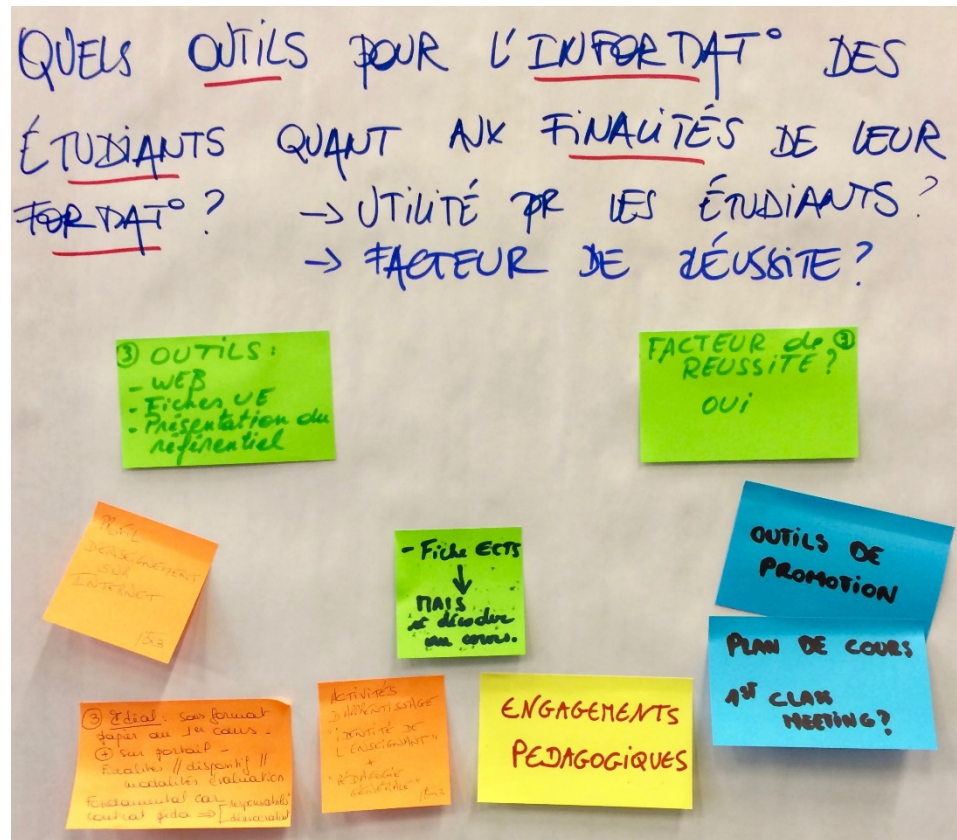 QUELS OUTILS POUR L'INFORMAT° DES
ÉTUDIANTS QUANT AUX FINALITÉS DE LEUR
FORMAT° ? → UTILITÉ PR LES ÉTUDIANTS ?
→ FACTEUR DE RÉUSSITE ?
③ OUTILS :
- WEB
- Fiches UE
- Présentation du
référentiel
FACTEUR de ③
REUSSITE ?
OUi
D'ENSEIGNEMENT
SUR
INTERNET
- Fiche ECTS
↓
MAIS
décoder
au cours.
OUTILS DE
PROMOTION
PLAN DE COURS
1ST CLASS
MEETING ?
③ Idéal : sous format
papier au 1er cours -
⊕ sur portail -
Finalités // dispositif //
modalités évaluation
Fondamental car
contrat péda ⇒
ACTIVITÉS
D'APPRENTISSAGE
"IDENTITÉ DE
L'ENSEIGNANT"
+
PÉDAGOGIE
GÉNÉRALE
ENGAGEMENTS
PEDAGOGIQUES